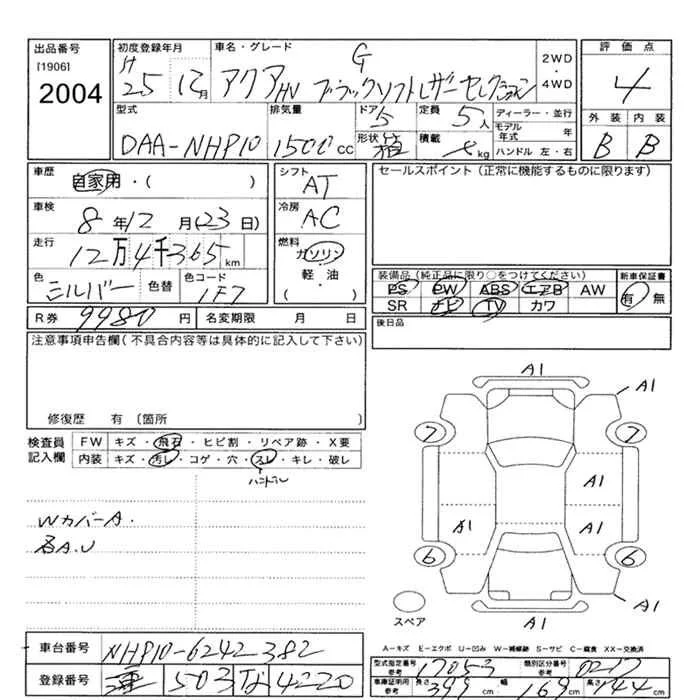 出品番号 初度登録年月 車名・グレード G 2WD・4WD 評価点
[1906] 2004 H25 12月 アクアHV ブラックソフトレザーセレクション 4
外装 内装
型式 排気量 ドア 5 定員 5人 ディーラー・並行
モデル年式 年
DAA-NHP10 1500cc 形状 箱 積載 kg ハンドル 左・右 B B
車歴 自家用・( ) シフト AT セールスポイント (正常に機能するものに限ります)
車検 8年12月(23日) 冷房 AC
走行 12万4千365km 燃料 ガソリン・軽・油 ( )
色 シルバー 色替 色コード 1F7
装備品 (純正品に限り○をつけてください) 新車保証書
PS PW ABS エアB AW 有・無
SR ナビ TV カワ
R券 9980円 名変期限 月 日 後日品
注意事項申告欄 (不具合内容等は具体的に記入して下さい)
修復歴 有 〔箇所 〕
検査員記入欄 FW キズ・飛石・ヒビ割・リペア跡・X要
内装 キズ・汚レ・コゲ・穴・スレ・キレ・破レ
ハンドル
WカバーA.
各A.U
A1
A1
7 7
A1
A1 A1
6 6
A1
スペア A1
A-キズ E-エクボ U-凹み W-補修跡 S-サビ C-腐食 XX-交換済
車台番号 NHP10-6242382
型式指定番号参考 17053 類別区分番号参考 0217
登録番号 503 な 4220
車庫証明用参考 長さ 399cm 幅 169cm 高さ 144cm